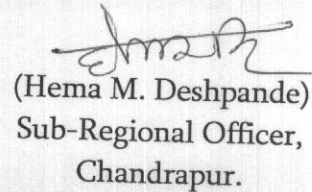 (Hema M. Deshpande)
Sub-Regional Officer,
Chandrapur.